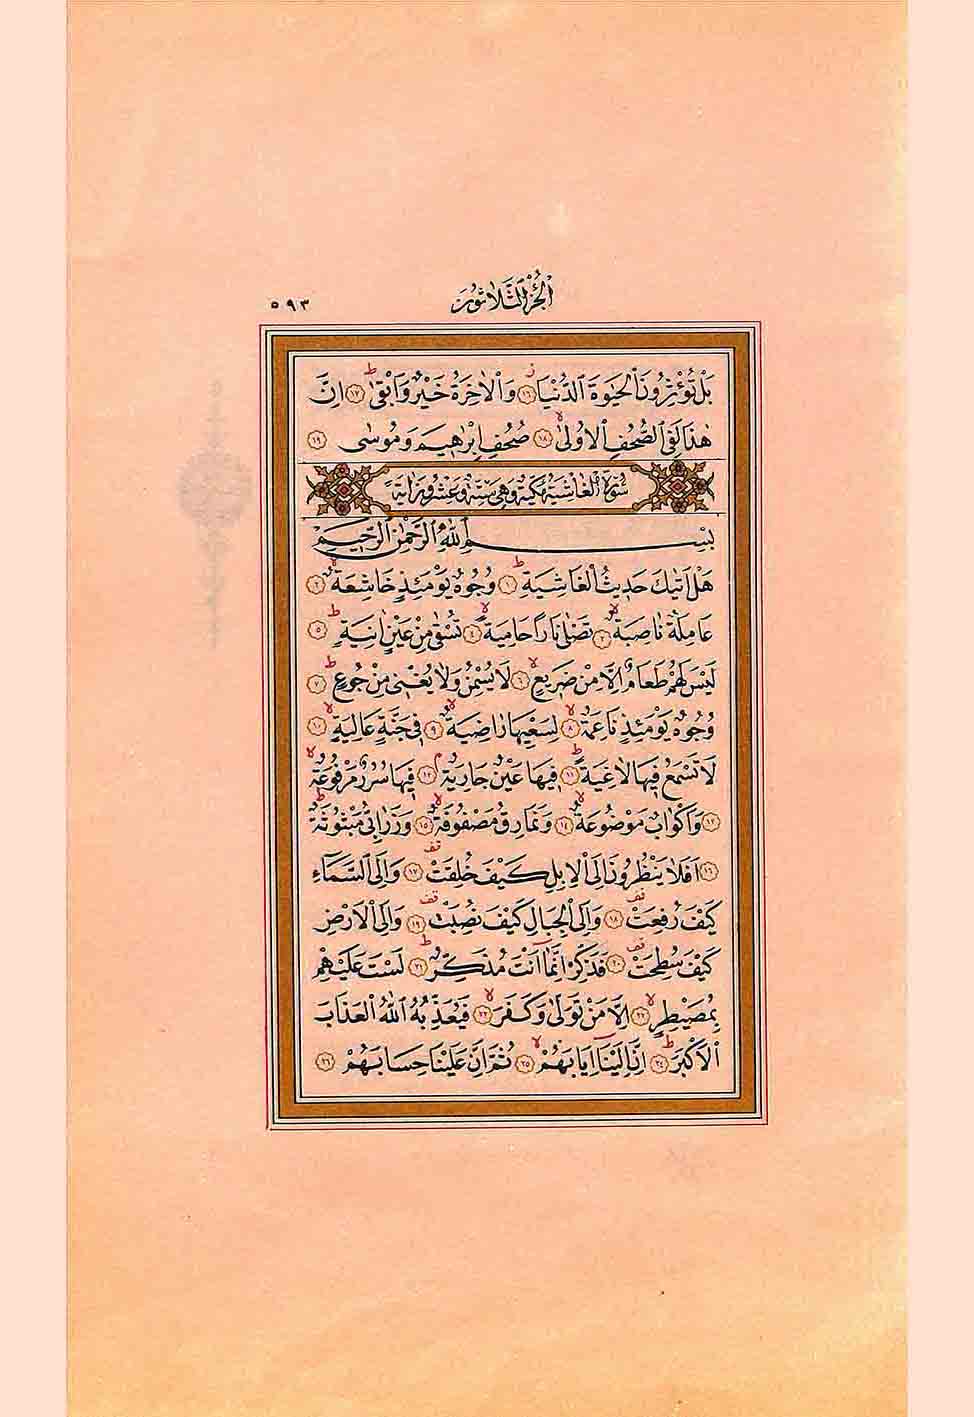 الجزء الثلاثون ٥٩٣
بَلْ تُؤْثِرُونَ الْحَيٰوةَ الدُّنْيَاۘ ﴿١٦﴾ وَالْاٰخِرَةُ خَيْرٌ وَاَبْقٰىۜ ﴿١٧﴾ اِنَّ
هٰذَا لَفِي الصُّحُفِ الْاُولٰىۙ ﴿١٨﴾ صُحُفِ اِبْرٰه۪يمَ وَمُوسٰى ﴿١٩﴾
سُورَةُ الْغَاشِيَةِ مَكِّيَّةٌ وَهِيَ سِتَّةٌ وَعِشْرُونَ اٰيَةً
بِسْمِ اللّٰهِ الرَّحْمٰنِ الرَّح۪يمِ
هَلْ اَتٰيكَ حَد۪يثُ الْغَاشِيَةِۜ ﴿١﴾ وُجُوهٌ يَوْمَئِذٍ خَاشِعَةٌۙ ﴿٢﴾
عَامِلَةٌ نَاصِبَةٌۙ ﴿٣﴾ تَصْلٰى نَارًا حَامِيَةًۙ ﴿٤﴾ تُسْقٰى مِنْ عَيْنٍ اٰنِيَةٍۜ ﴿٥﴾
لَيْسَ لَهُمْ طَعَامٌ اِلَّا مِنْ ضَر۪يعٍۙ ﴿٦﴾ لَا يُسْمِنُ وَلَا يُغْن۪ي مِنْ جُوعٍۜ ﴿٧﴾
وُجُوهٌ يَوْمَئِذٍ نَاعِمَةٌۙ ﴿٨﴾ لِسَعْيِهَا رَاضِيَةٌۙ ﴿٩﴾ ف۪ي جَنَّةٍ عَالِيَةٍۙ ﴿١٠﴾
لَا تَسْمَعُ ف۪يهَا لَاغِيَةًۜ ﴿١١﴾ ف۪يهَا عَيْنٌ جَارِيَةٌۢ ﴿١٢﴾ ف۪يهَا سُرُرٌ مَرْفُوعَةٌۙ
﴿١٣﴾ وَاَكْوَابٌ مَوْضُوعَةٌۙ ﴿١٤﴾ وَنَمَارِقُ مَصْفُوفَةٌۙ ﴿١٥﴾ وَزَرَابِيُّ مَبْثُوثَةٌۜ
﴿١٦﴾ اَفَلَا يَنْظُرُونَ اِلَى الْاِبِلِ كَيْفَ خُلِقَتْ۠ ﴿١٧﴾ وَاِلَى السَّمَٓاءِ
كَيْفَ رُفِعَتْ۠ ﴿١٨﴾ وَاِلَى الْجِبَالِ كَيْفَ نُصِبَتْ۠ ﴿١٩﴾ وَاِلَى الْاَرْضِ
كَيْفَ سُطِحَتْ۠ ﴿٢٠﴾ فَذَكِّرْ اِنَّمَٓا اَنْتَ مُذَكِّرٌۜ ﴿٢١﴾ لَسْتَ عَلَيْهِمْ
بِمُصَيْطِرٍۙ ﴿٢٢﴾ اِلَّا مَنْ تَوَلّٰى وَكَفَرَۙ ﴿٢٣﴾ فَيُعَذِّبُهُ اللّٰهُ الْعَذَابَ
الْاَكْبَرَۜ ﴿٢٤﴾ اِنَّ اِلَيْنَٓا اِيَابَهُمْۙ ﴿٢٥﴾ ثُمَّ اِنَّ عَلَيْنَا حِسَابَهُمْ ﴿٢٦﴾